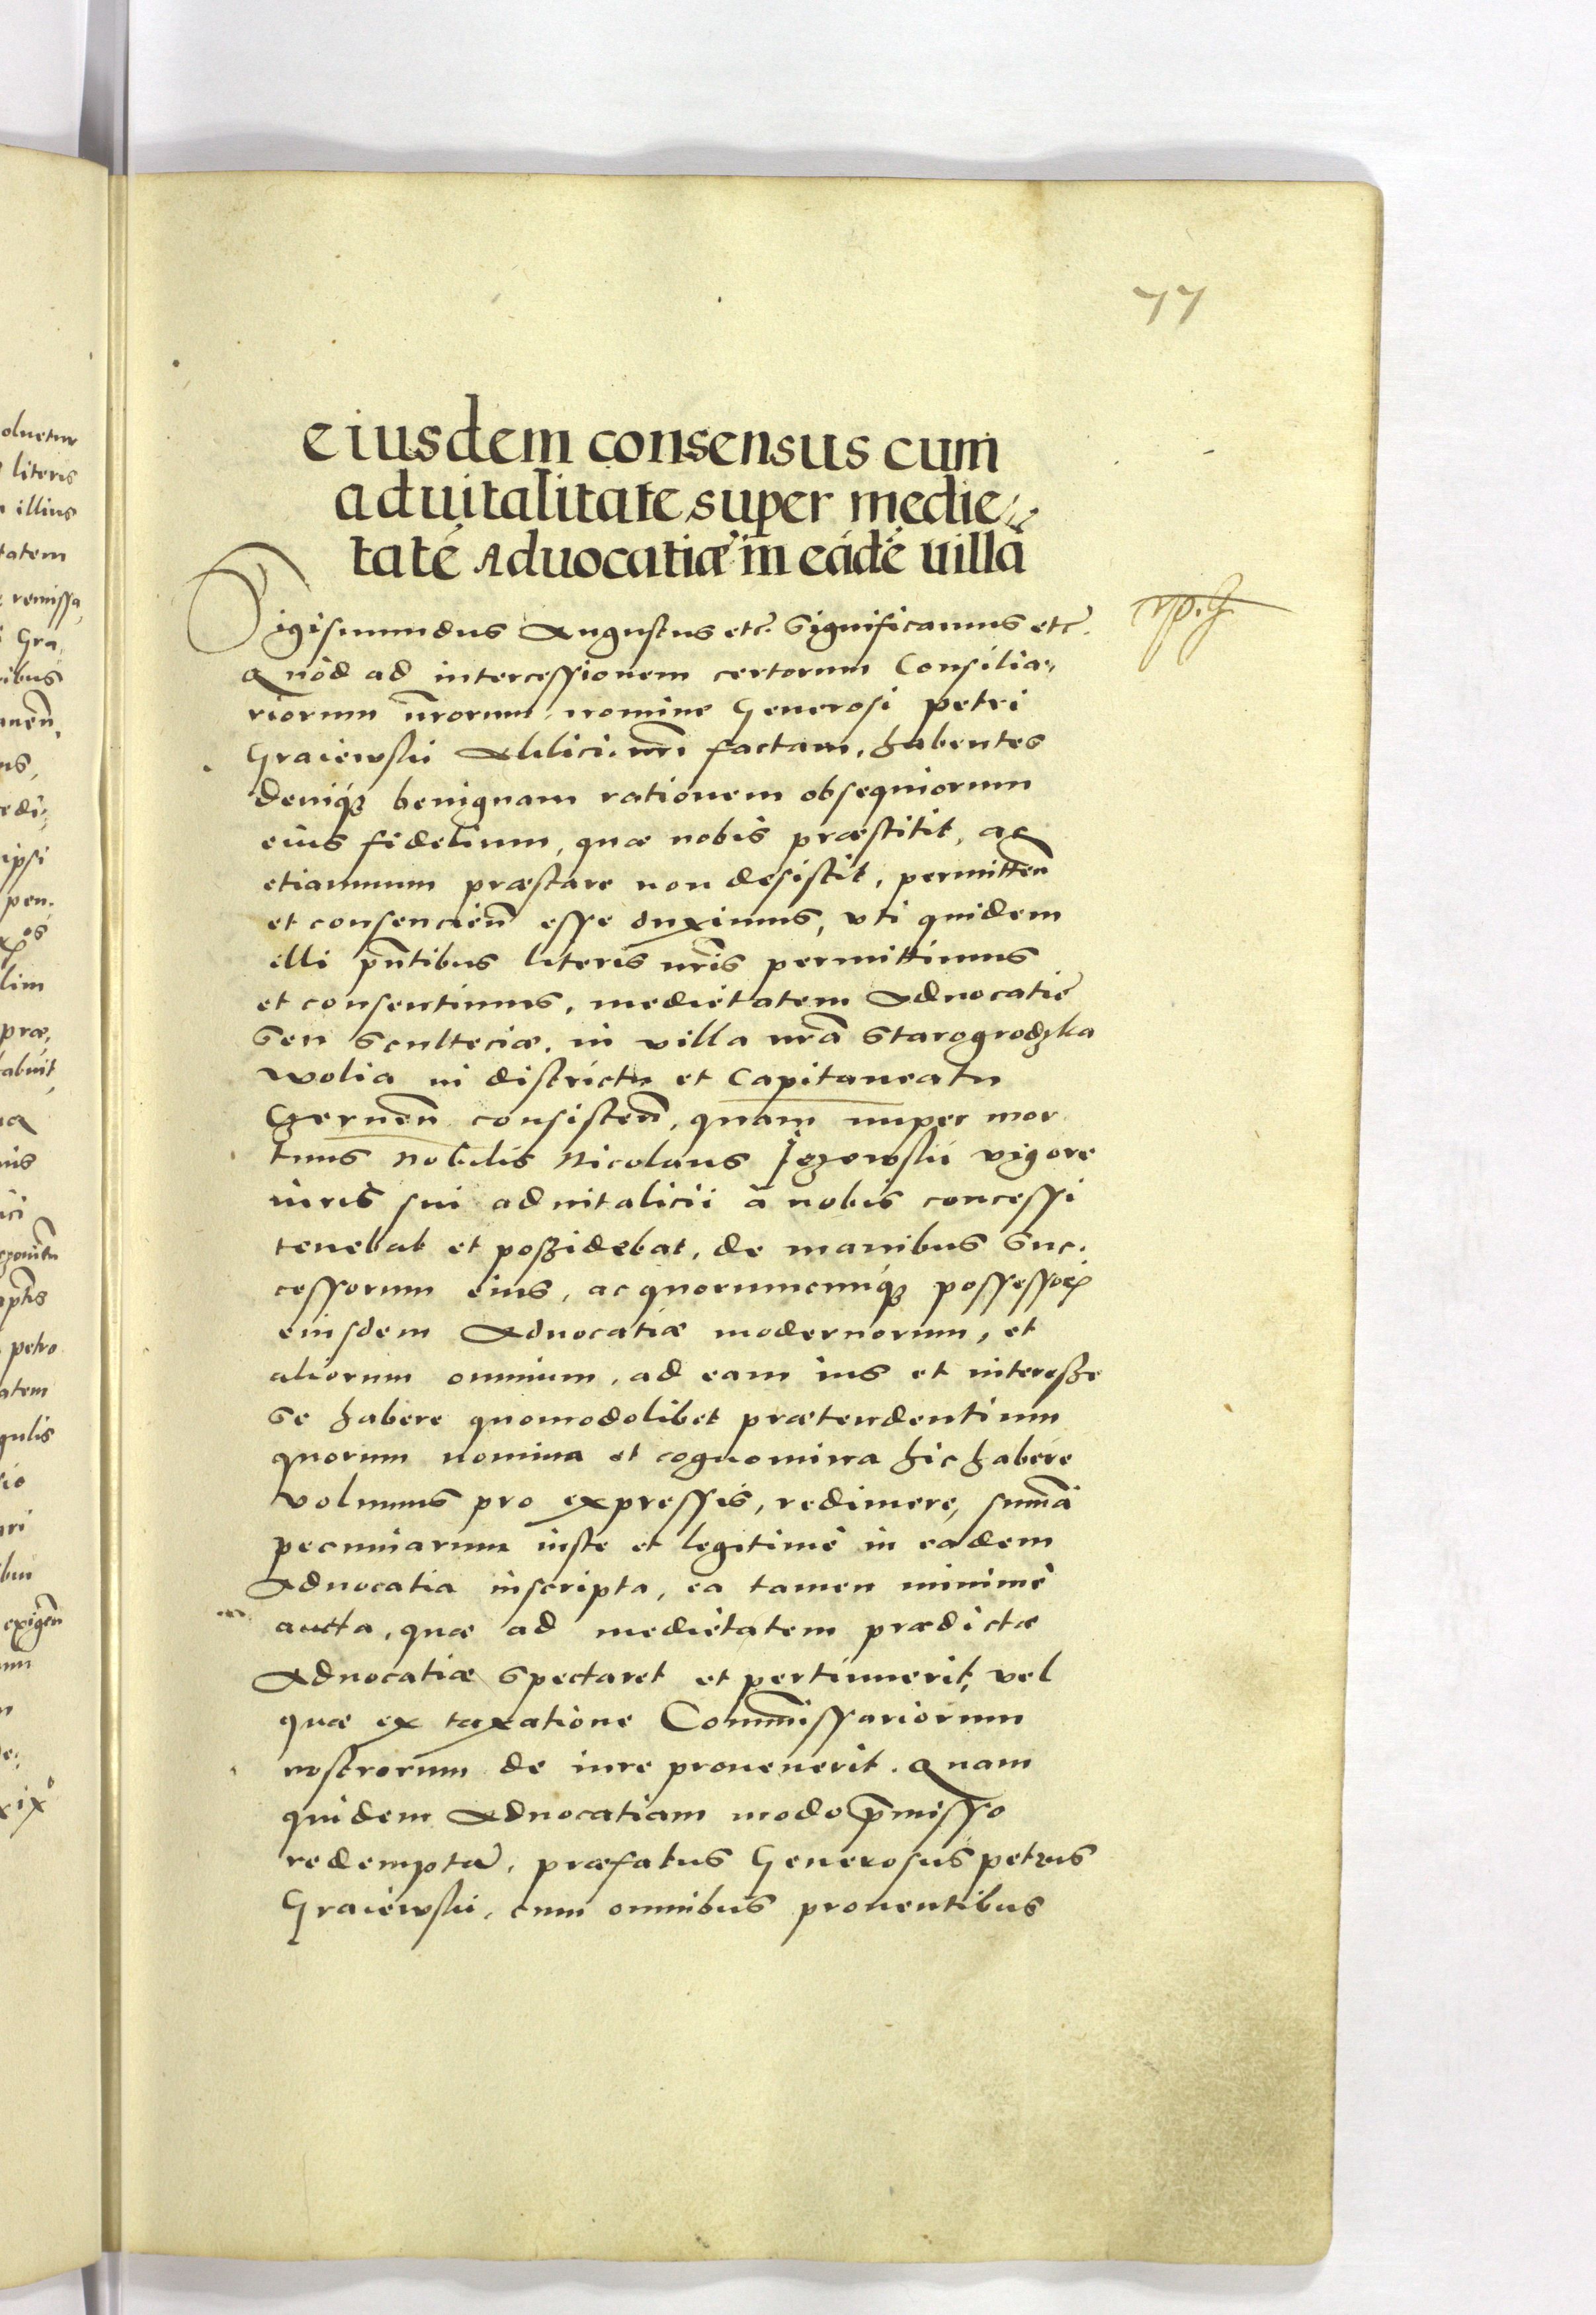 77
eiusdem consensus cum
aduitalitate super medie
tatē Aduocatiæ in eādē villa
Sigismundus Augustus etc̄. Significamus etc̄.
Quòd ad intercessionem certorum Consilia-
riorum nr̄orum, nomine Generosi Petri
Graiewskii Aulici nr̄i factam, habentes
deniqꝫ benignam rationem obsequiorum
eius fidelium, quæ nobis præstitit, ac
etiamnum præstare non desistit, permitten̄
et consencien̄ esse duximus, vti quidem
illi pn̄tibus literis nr̄is permittimus
et consentimus, medietatem Aduocatie
Seu Sculteciæ, in villa nr̄a Starogrodzka
wolia in districtu et Capitaneatu
Czernen̄ consisten̄, quam nuper mor
tuus Nobilis Nicolaus Jezewskii vigore
iuris sui aduitalicii à nobis concessi
tenebat et possidebat, de manibus Suc-
cessorum eius, ac quorumcunqꝫ possessorꝝ
eiusdem Aduocatiæ modernorum, et
aliorum omnium, ad eam ius et interesse
se habere quomodolibet prætendentium
quorum nomina et cognomina hic habere
volumus pro expressis, redimere, sum̄a
pecuniarum iuste et legitimè in eadem
Aduocatia inscripta, ea tamen minimè
aucta, quæ ad medietatem prædictæ
Aduocatiæ Spectaret et pertinuerit, vel
quæ ex taxatione Com̄missariorum
nostrorum de iure prouenerit. Quam
quidem Aduocatiam modo p̄misso
redemptā, præfatus Generosus Petrus
Graiewskii, cum omnibus prouentibus